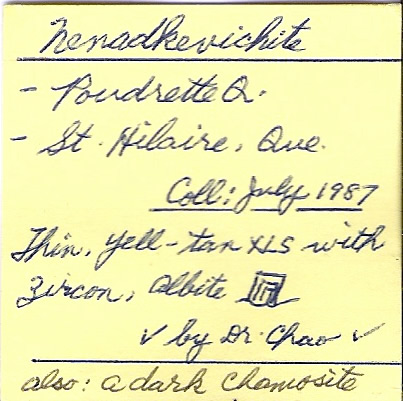 Nenadkevichite
- Poudrette Q.
- St. Hilaire, Que.
Coll: July 1987
Thin, yell-tan XLS with
Zircon, albite
✓ by Dr. Chao ✓
also: a dark chamosite